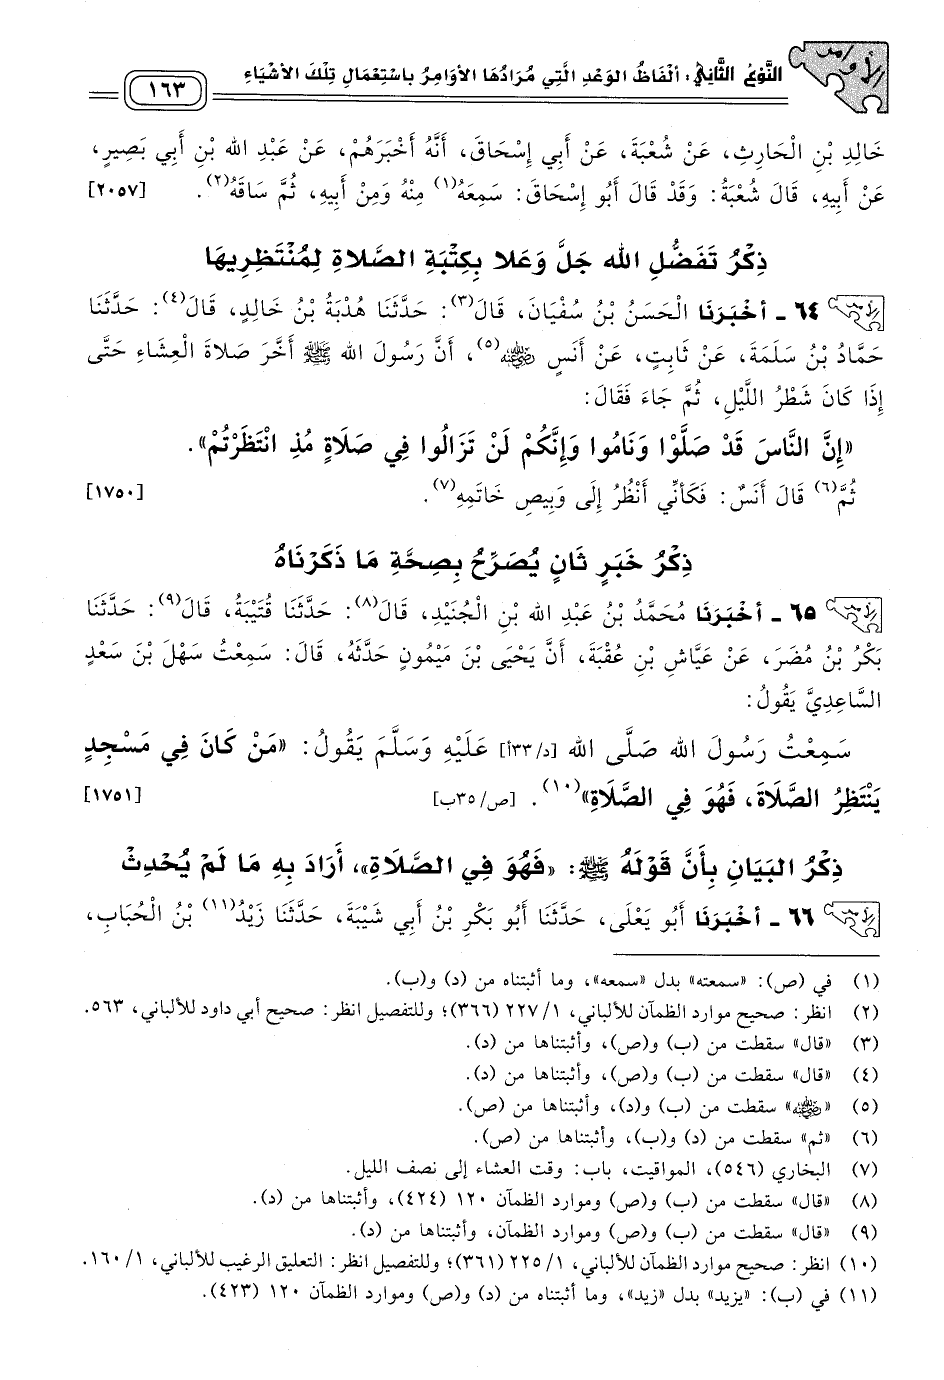 الأوامر
النَّوْعُ الثَّانِي: أَلْفَاظُ الوَعْدِ الَّتِي مُرَادُهَا الأَوَامِرُ بِاسْتِعْمَالِ تِلْكَ الأَشْيَاءِ
١٦٣
خَالِدِ بْنِ الْحَارِثِ، عَنْ شُعْبَةَ، عَنْ أَبِي إِسْحَاقَ، أَنَّهُ أَخْبَرَهُمْ، عَنْ عَبْدِ الله بْنِ أَبِي بَصِيرٍ،
عَنْ أَبِيهِ، قَالَ شُعْبَةُ: وَقَدْ قَالَ أَبُو إِسْحَاقَ: سَمِعَهُ(١) مِنْهُ وَمِنْ أَبِيهِ، ثُمَّ سَاقَهُ(٢). [٢٠٥٧]
ذِكْرُ تَفَضُّلِ الله جَلَّ وَعَلا بِكِتْبَةِ الصَّلاةِ لِمُنْتَظِرِيهَا
٦٤ - أخْبَرَنَا الْحَسَنُ بْنُ سُفْيَانَ، قَالَ(٣): حَدَّثَنَا هُدْبَةُ بْنُ خَالِدٍ، قَالَ(٤): حَدَّثَنَا
حَمَّادُ بْنُ سَلَمَةَ، عَنْ ثَابِتٍ، عَنْ أَنَسٍ رضي الله عنه(٥)، أَنَّ رَسُولَ الله ﷺ أَخَّرَ صَلاةَ الْعِشَاءِ حَتَّى
إِذَا كَانَ شَطْرُ اللَّيْلِ، ثُمَّ جَاءَ فَقَالَ:
«إِنَّ النَّاسَ قَدْ صَلَّوْا وَنَامُوا وَإِنَّكُمْ لَنْ تَزَالُوا فِي صَلَاةٍ مُذِ انْتَظَرْتُمْ».
ثُمَّ(٦) قَالَ أَنَسٌ: فَكَأَنِّي أَنْظُرُ إِلَى وَبِيصِ خَاتَمِهِ(٧). [١٧٥٠]
ذِكْرُ خَبَرٍ ثَانٍ يُصَرِّحُ بِصِحَّةِ مَا ذَكَرْنَاهُ
٦٥ - أخْبَرَنَا مُحَمَّدُ بْنُ عَبْدِ الله بْنِ الْجُنَيْدِ، قَالَ(٨): حَدَّثَنَا قُتَيْبَةُ، قَالَ(٩): حَدَّثَنَا
بَكْرُ بْنُ مُضَرَ، عَنْ عَيَّاشِ بْنِ عُقْبَةَ، أَنَّ يَحْيَى بْنَ مَيْمُونٍ حَدَّثَهُ، قَالَ: سَمِعْتُ سَهْلَ بْنَ سَعْدٍ
السَّاعِدِيَّ يَقُولُ:
سَمِعْتُ رَسُولَ الله صَلَّى الله [د/٣٣أ] عَلَيْهِ وَسَلَّمَ يَقُولُ: «مَنْ كَانَ فِي مَسْجِدٍ
يَنْتَظِرُ الصَّلاَةَ، فَهُوَ فِي الصَّلاَةِ»(١٠). [ص/٣٥ب] [١٧٥١]
ذِكْرُ البَيَانِ بِأَنَّ قَوْلَهُ ﷺ: «فَهُوَ فِي الصَّلاةِ»، أَرَادَ بِهِ مَا لَمْ يُحْدِثْ
٦٦ - أخْبَرَنَا أَبُو يَعْلَى، حَدَّثَنَا أَبُو بَكْرِ بْنُ أَبِي شَيْبَةَ، حَدَّثَنَا زَيْدُ(١١) بْنُ الْحُبَابِ،
(١) في (ص): «سمعته» بدل «سمعه»، وما أثبتناه من (د) و(ب).
(٢) انظر: صحيح موارد الظمآن للألباني، ٢٢٧/١ (٣٦٦)؛ وللتفصيل انظر: صحيح أبي داود للألباني، ٥٦٣.
(٣) «قال» سقطت من (ب) و(ص)، وأثبتناها من (د).
(٤) «قال» سقطت من (ب) و(ص)، وأثبتناها من (د).
(٥) «رضي الله عنه» سقطت من (ب) و(د)، وأثبتناها من (ص).
(٦) «ثم» سقطت من (د) و(ب)، وأثبتناها من (ص).
(٧) البخاري (٥٤٦)، المواقيت، باب: وقت العشاء إلى نصف الليل.
(٨) «قال» سقطت من (ب) و(ص) وموارد الظمآن ١٢٠ (٤٢٤)، وأثبتناها من (د).
(٩) «قال» سقطت من (ب) و(ص) وموارد الظمآن، وأثبتناها من (د).
(١٠) انظر: صحيح موارد الظمآن للألباني، ٢٢٥/١ (٣٦١)؛ وللتفصيل انظر: التعليق الرغيب للألباني، ١٦٠/١.
(١١) في (ب): «يزيد» بدل «زيد»، وما أثبتناه من (د) و(ص) وموارد الظمآن ١٢٠ (٤٢٣).